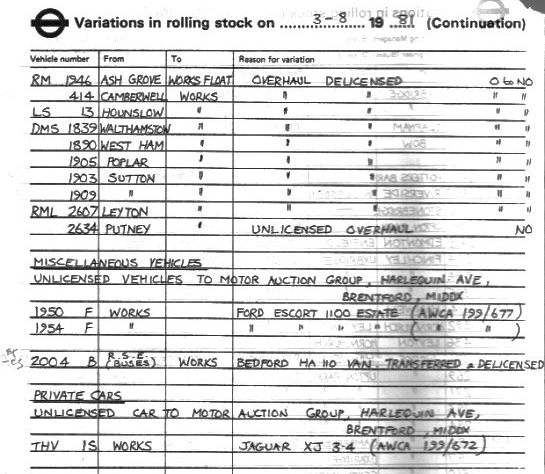 Variations in rolling stock on 3-8 19 81 (Continuation)
Vehicle number From To Reason for variation
RM 1946 ASH GROVE WORKS FLOAT OVERHAUL DELICENSED O to NO
414 CAMBERWELL WORKS " " " "
LS 13 HOUNSLOW " " " " "
DMS 1839 WALTHAMSTOW " " " " "
1890 WEST HAM " " " " "
1905 POPLAR " " " " "
1903 SUTTON " " " " "
1909 " " " " " "
RML 2607 LEYTON " " " " "
2634 PUTNEY " UNLICENSED OVERHAUL NO
MISCELLANEOUS VEHICLES
UNLICENSED VEHICLES TO MOTOR AUCTION GROUP, HARLEQUIN AVE,
BRENTFORD, MIDDX
1950 F WORKS FORD ESCORT 1100 ESTATE (AWCA 199/677)
1954 F " " " " " ( " " )
2004 B R.S.E. (BUSES) WORKS BEDFORD HA 110 VAN TRANSFERRED & DELICENSED
PRIVATE CARS
UNLICENSED CAR TO MOTOR AUCTION GROUP, HARLEQUIN AVE,
BRENTFORD, MIDDX
THV 1S WORKS JAGUAR XJ 3-4 (AWCA 199/672)